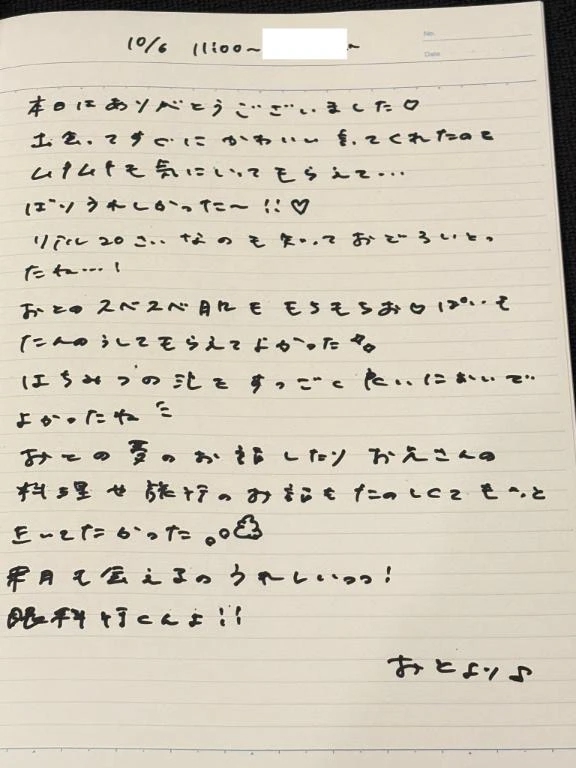 No.
Date
10/6 11:00〜 〜
本日はありがとうございました♡
出会ってすぐに かわいい 言ってくれたのと
ムチムチも気にいってもらえて…
ばりうれしかった〜!!♡
リアル20さい なのも知って おどろいとっ
たね…!
おとのスベスベ肌も もちもちお♡ぱいも
たんのうしてもらえてよかった
はちみつの泡も すっごく 良いにおいで
よかったね
おとの夢のお話したり お兄さんの
料理や旅行のお話もたのしくてもっと
きいてたかった。
来月も会えるの うれしいっっ!
眼科行くんよ!!
おとより♪